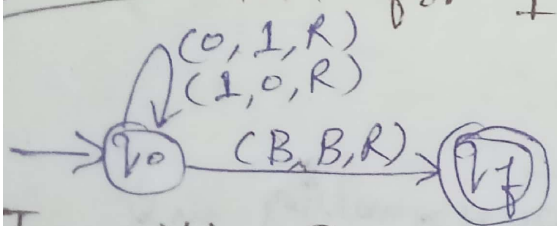 (0, 1, R)
(1, 0, R)
q0 (B, B, R) qf